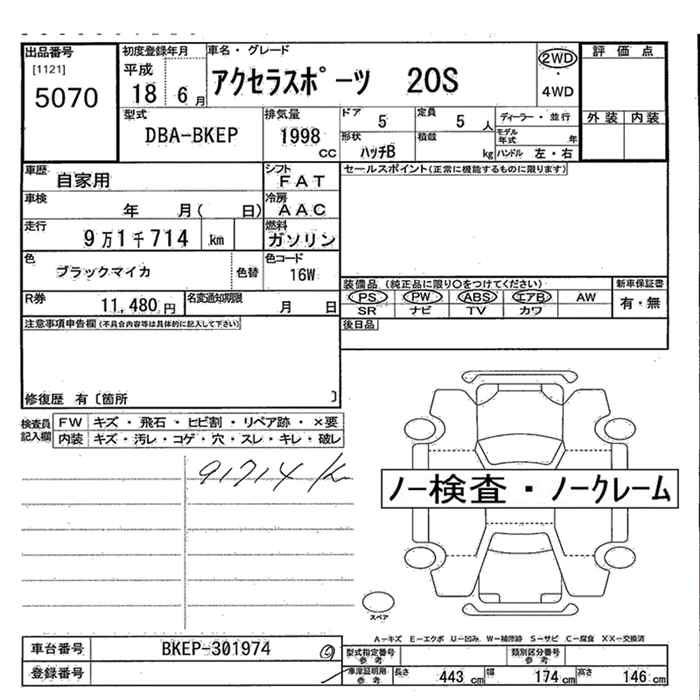 出品番号 [1121] 5070
初度登録年月 平成 18 6月
車名・グレード アクセラスポーツ 20S
2WD・4WD
評価点
外装 内装
型式 DBA-BKEP
排気量 1998 cc
ドア 5
定員 5 人
形状 ハッチB
積載 kg
ディーラー・並行
モデル年式 年
ハンドル 左・右
車歴 自家用
シフト FAT
セールスポイント(正常に機能するものに限ります)
車検 年 月( 日)
冷房 AAC
走行 9万1千714 km
燃料 ガソリン
色 ブラックマイカ 色替
色コード 16W
装備品(純正品に限り○をつけてください)
新車保証書
PS PW ABS エアB AW 有・無
SR ナビ TV カワ
R券 11,480 円
名変通知期限 月 日
後日品
注意事項申告欄(不具合内容等は具体的に記入して下さい)
修復歴 有〔箇所 〕
検査員記入欄
FW キズ・飛石・ヒビ割・リペア跡・×要
内装 キズ・汚レ・コゲ・穴・スレ・キレ・破レ
91714 K
ノー検査・ノークレーム
スペア
A-キズ E-エクボ U-凹み W-補修跡 S-サビ C-腐食 XX-交換済
車台番号 BKEP-301974
登録番号
型式指定番号 参考
類別区分番号 参考
車庫証明用 参考 長さ 443 cm 幅 174 cm 高さ 146 cm